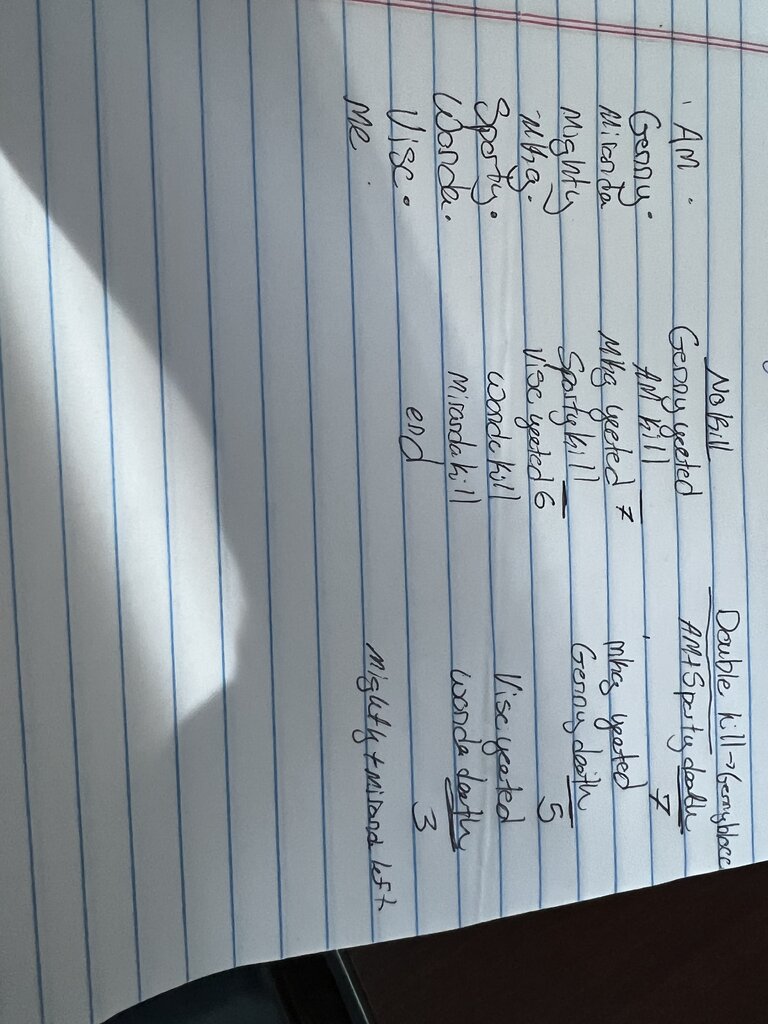 AM.
Genny.
Miranda
Mighty
Mhg.
Sporty.
Wanda.
Visc.
Me.
No kill
Genny yeeted
AM kill
Mhg yeeted 7
Sporty kill
Visc yeeted 6
Wanda kill
Miranda kill
end
Double kill → Genny
AM + Sporty death
7
mhg yeeted
Genny death
5
Visc yeeted
Wanda death
3
Mighty + Mirand left